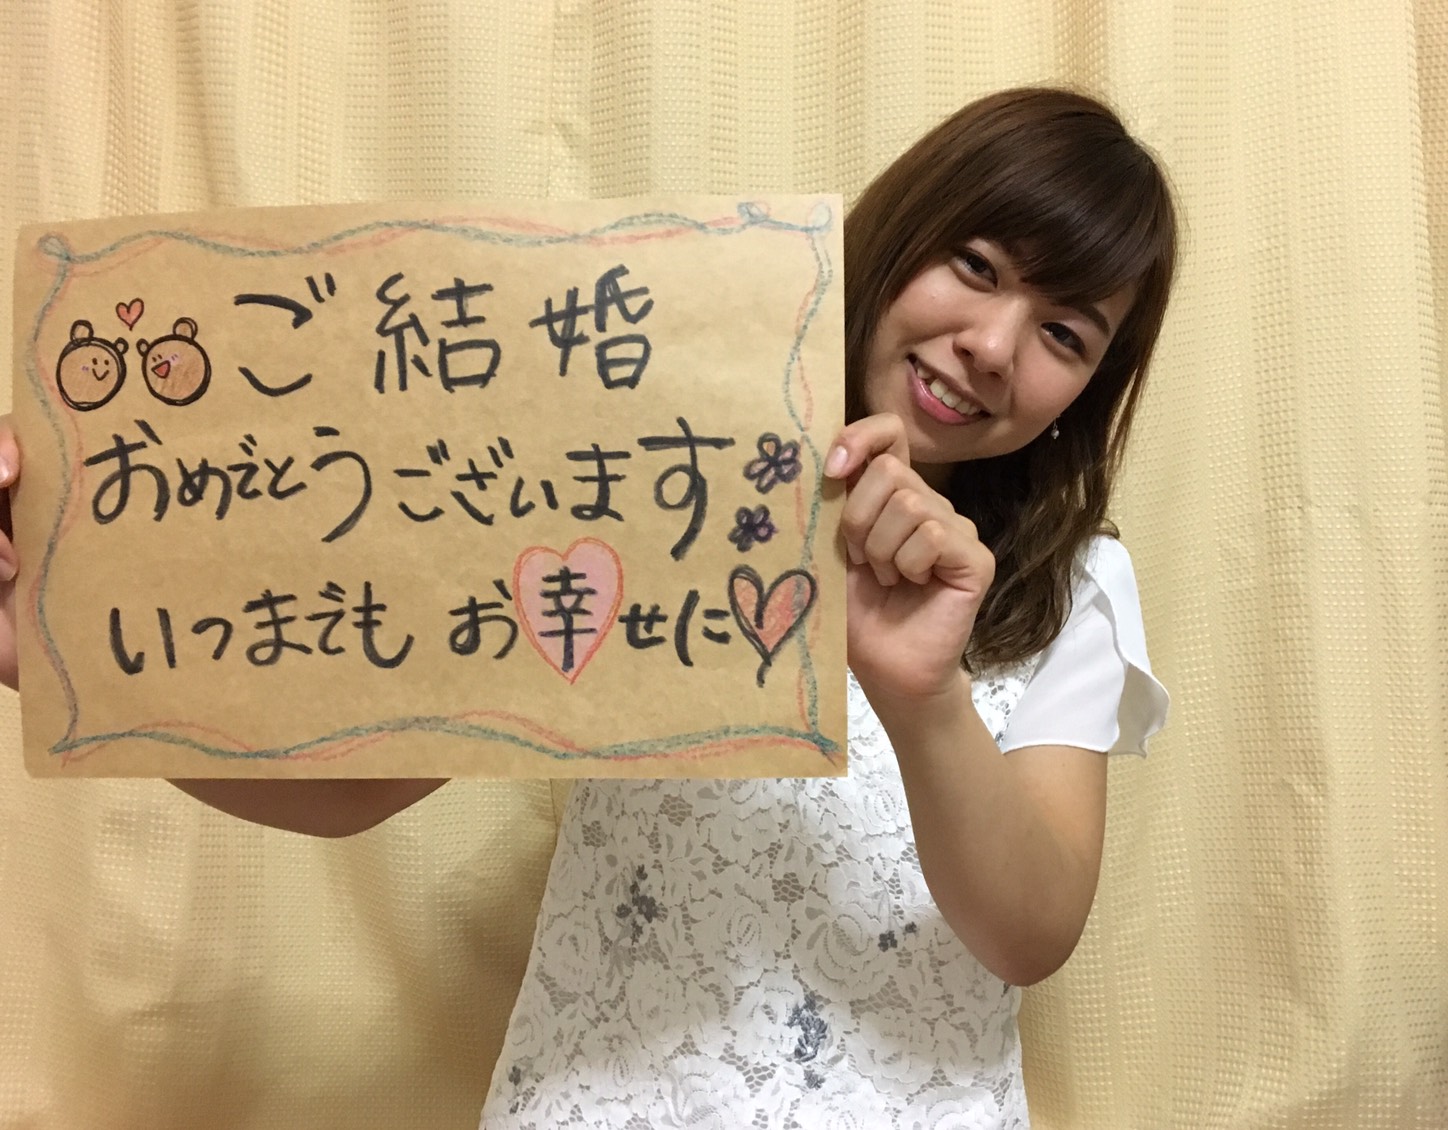 ご結婚
おめでとうございます
いつまでもお幸せに